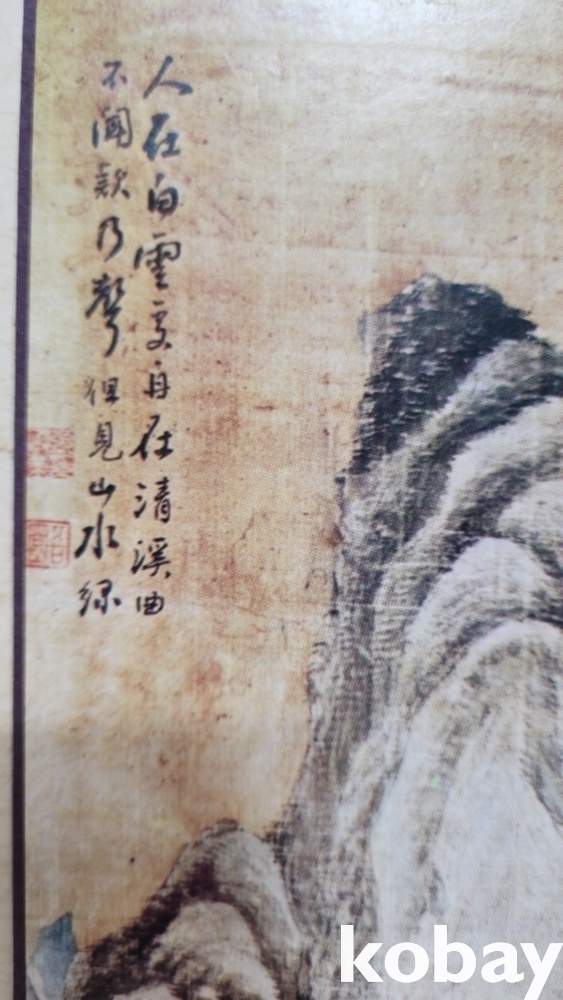 人在白雲舟在清溪曲
不聞欸乃聲但見山水綠
kobay